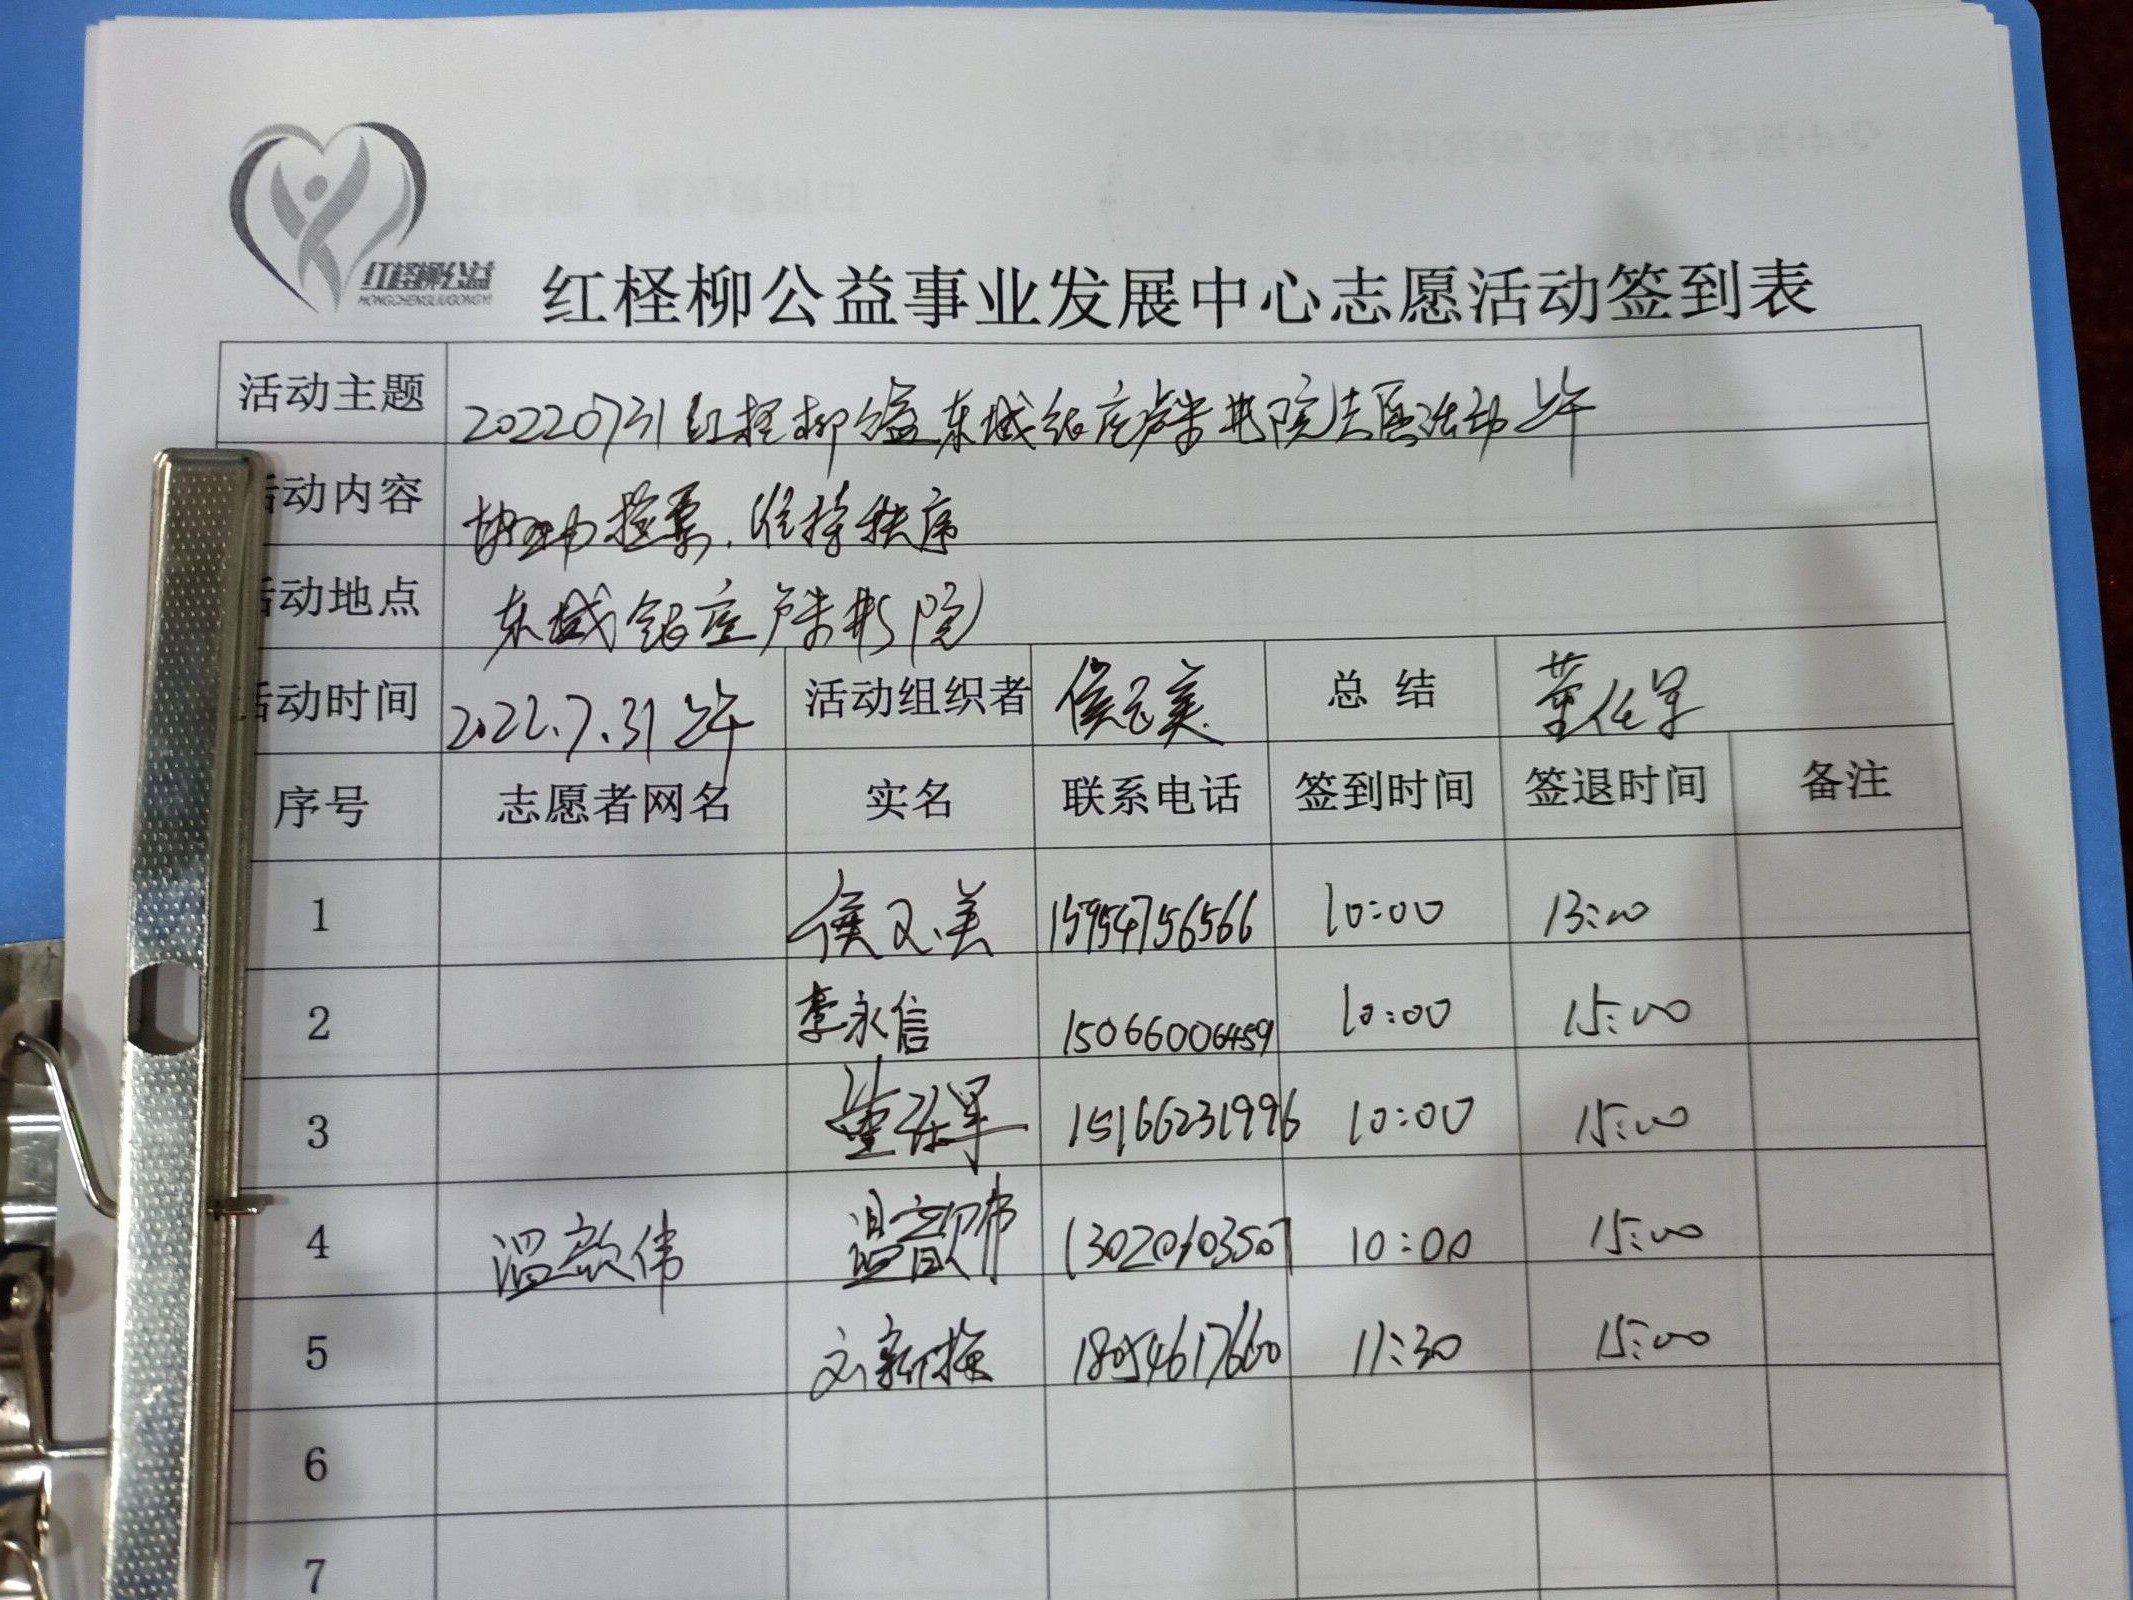 红柽柳公益
HONGCHENGLIUGONGYI
红柽柳公益事业发展中心志愿活动签到表
活动主题 20220731红柽柳公益东城银座卢米书院志愿活动上午
活动内容 协助检票、维持秩序
活动地点 东城银座卢米书院
活动时间 2022.7.31上午 活动组织者 侯 美 总 结 董 军
序号 志愿者网名 实名 联系电话 签到时间 签退时间 备注
1 侯 美 15954756566 10:00 13:00
2 李永信 15066006459 10:00 15:00
3 董 军 15166231996 10:00 15:00
4 温歆伟 温歆伟 10:00 15:00
5 刘新梅 18054617660 11:30 15:00
6
7